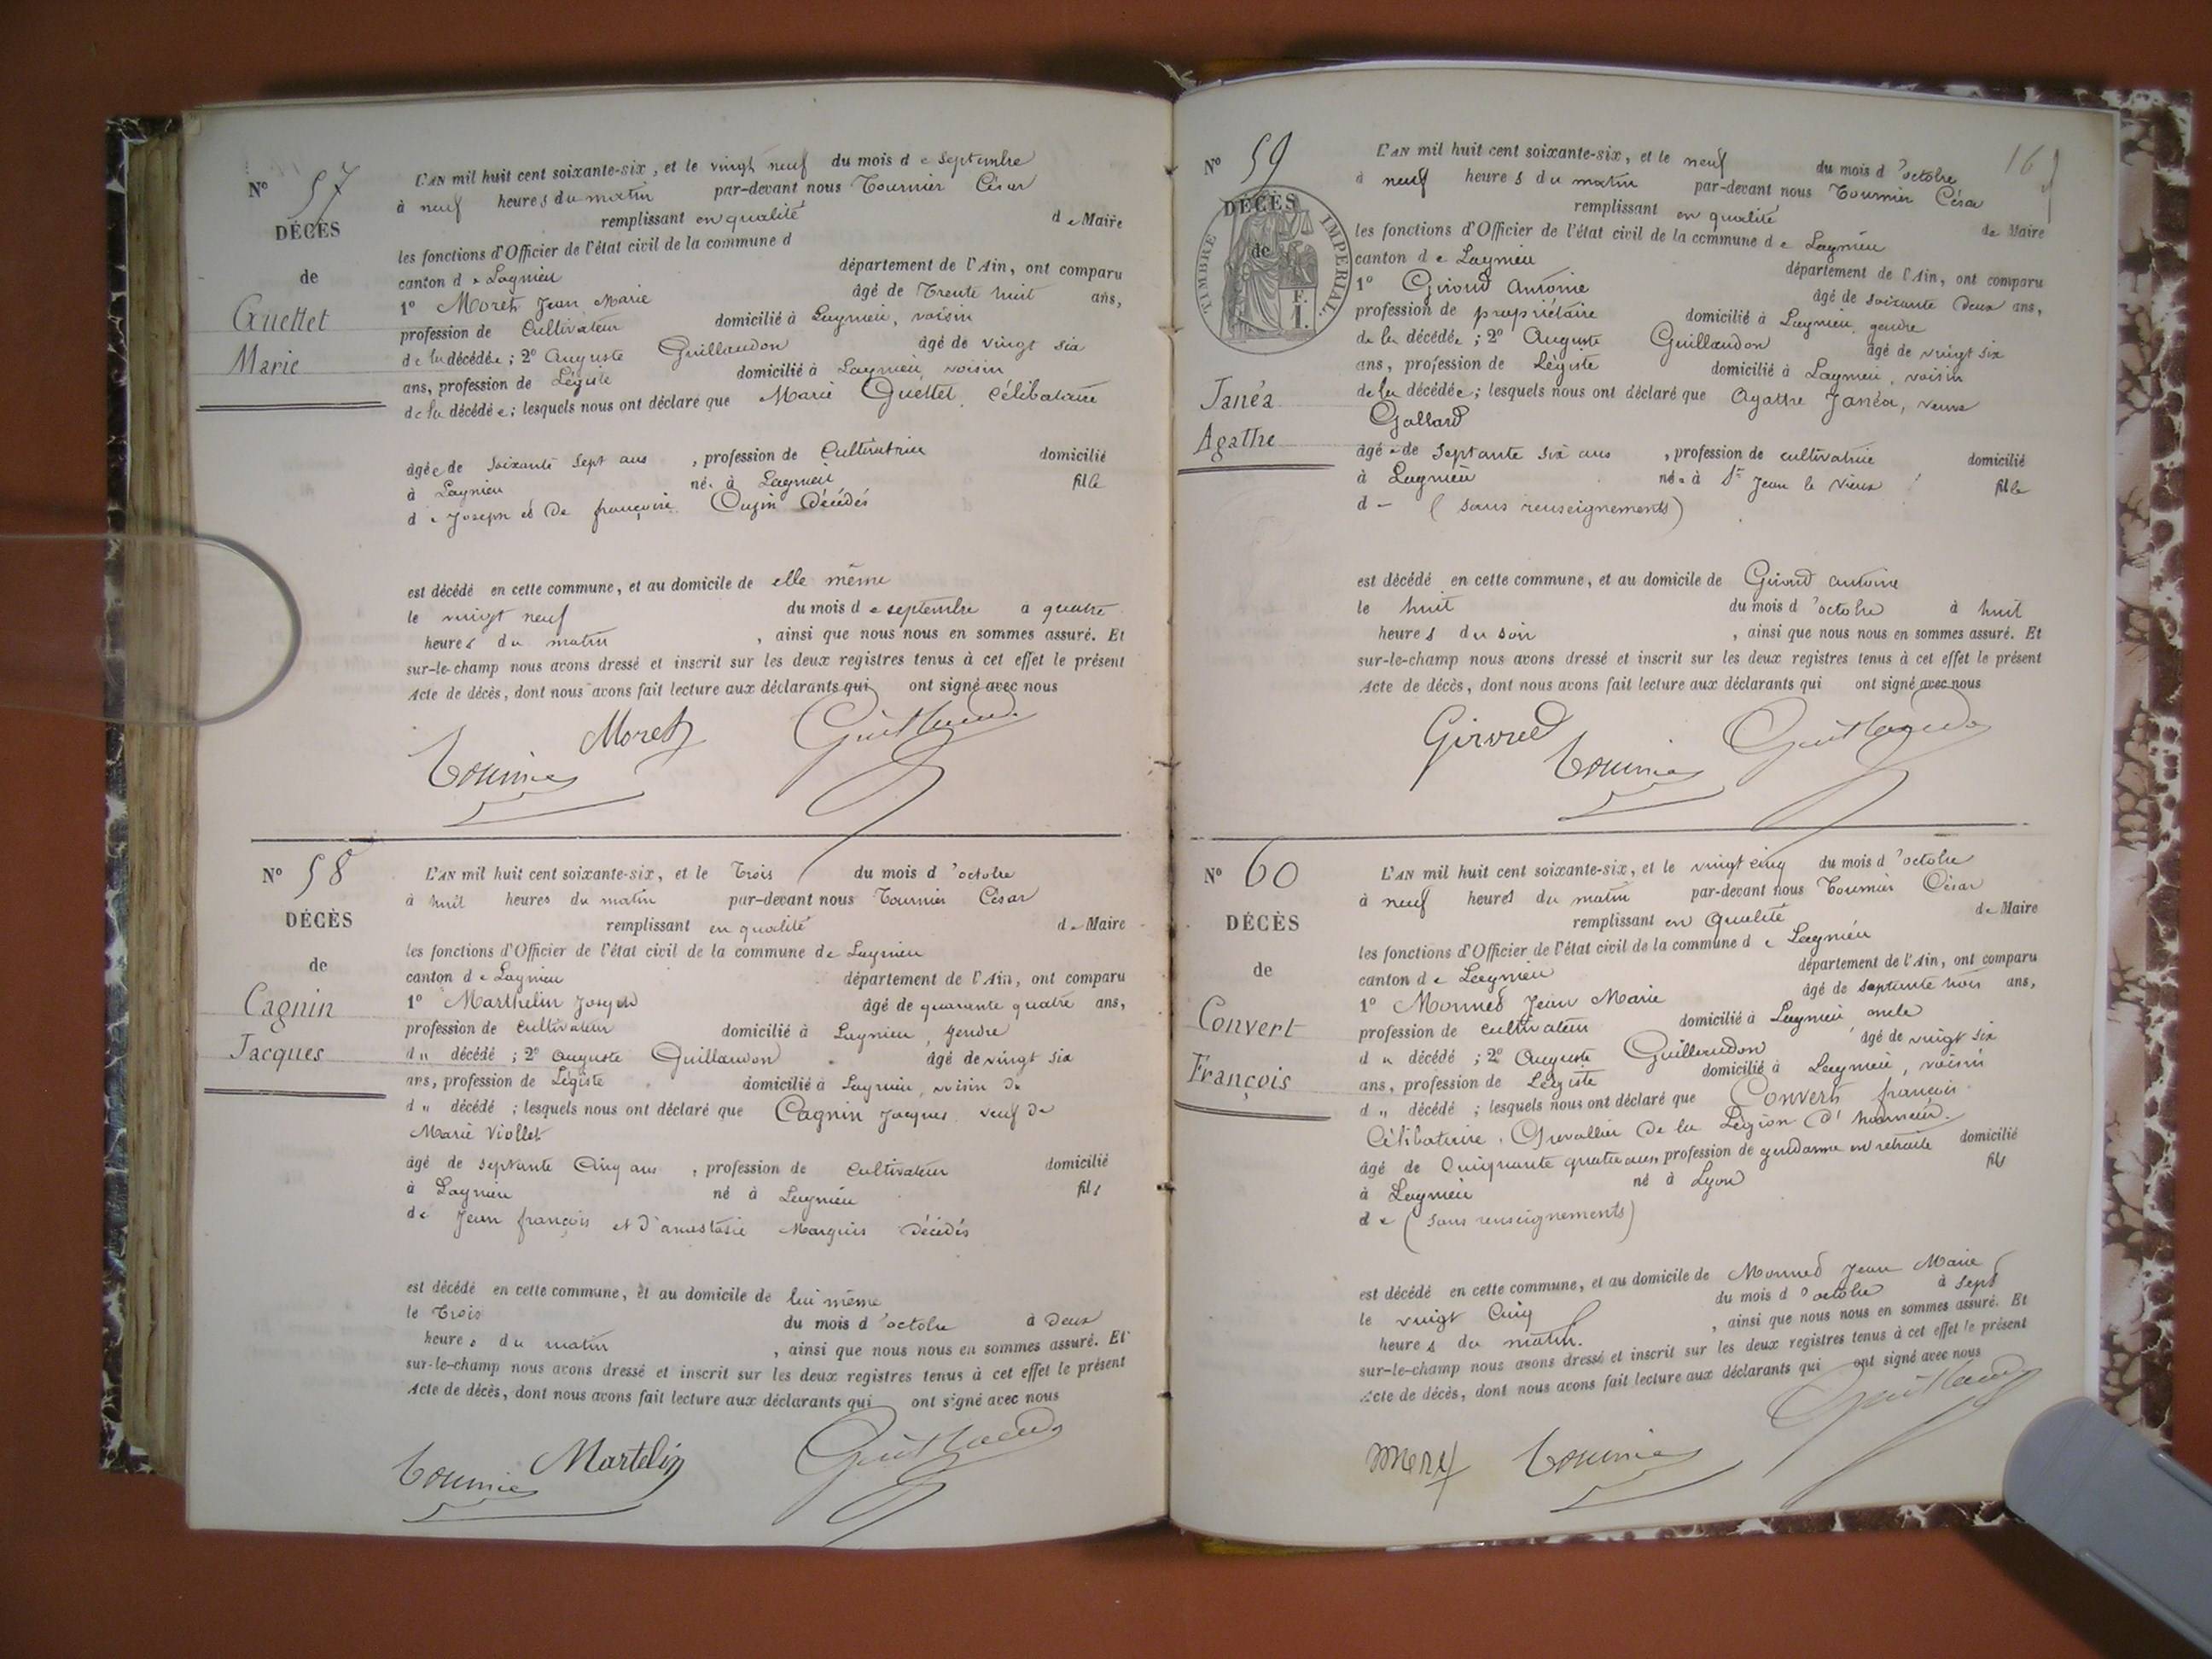 N° 57
DÉCÈS
de
Guettet
Marie
L'AN mil huit cent soixante-six, et le vingt neuf du mois de septembre
à neuf heures du matin par-devant nous Tournier César
remplissant en qualité de Maire
les fonctions d'Officier de l'état civil de la commune d
canton de Lagnieu département de l'Ain, ont comparu
1° Moret Jean Marie âgé de Trente huit ans,
profession de Cultivateur domicilié à Lagnieu, voisin
de la décédée ; 2° Auguste Guillaudon âgé de vingt six
ans, profession de Légiste domicilié à Lagnieu, voisin
de la décédée ; lesquels nous ont déclaré que Marie Guettet, célibataire
âgée de soixante sept ans, profession de Cultivatrice domicilié
à Lagnieu née à Lagnieu fille
de Joseph et de françoise décédés
est décédé en cette commune, et au domicile de elle même
le vingt neuf du mois de septembre à quatre
heures du matin, ainsi que nous nous en sommes assuré. Et
sur-le-champ nous avons dressé et inscrit sur les deux registres tenus à cet effet le présent
Acte de décès, dont nous avons fait lecture aux déclarants qui ont signé avec nous
Moret Guillaudon
Tournier
N° 58
DÉCÈS
de
Cagnin
Jacques
L'AN mil huit cent soixante-six, et le Trois du mois d'octobre
à huit heures du matin par-devant nous Tournier César
remplissant en qualité de Maire
les fonctions d'Officier de l'état civil de la commune de Lagnieu
canton de Lagnieu département de l'Ain, ont comparu
1° Marthelin Joseph âgé de quarante quatre ans,
profession de cultivateur domicilié à Lagnieu, gendre
du décédé ; 2° Auguste Guillaudon âgé de vingt six
ans, profession de Légiste domicilié à Lagnieu, voisin du
du décédé ; lesquels nous ont déclaré que Cagnin Jacques, veuf de
Marie Viollet
âgé de septante cinq ans, profession de Cultivateur domicilié
à Lagnieu né à Lagnieu fils
de Jean françois et d'anastasie Marquis décédés
est décédé en cette commune, et au domicile de lui même
le Trois du mois d'octobre à Deux
heures du matin, ainsi que nous nous en sommes assuré. Et
sur-le-champ nous avons dressé et inscrit sur les deux registres tenus à cet effet le présent
Acte de décès, dont nous avons fait lecture aux déclarants qui ont signé avec nous
Tournier Martelin Guillaudon
N° 59
DÉCÈS
de
TIMBRE IMPERIAL
F.
I.
Janéa
Agathe
L'AN mil huit cent soixante-six, et le neuf du mois d'octobre
à neuf heures du matin par-devant nous Tournier César
remplissant en qualité de Maire
les fonctions d'Officier de l'état civil de la commune de Lagnieu
canton de Lagnieu département de l'Ain, ont comparu
1° Giroud Antoine âgé de soixante Deux ans,
profession de propriétaire domicilié à Lagnieu, gendre
de la décédée ; 2° Auguste Guillaudon âgé de vingt six
ans, profession de Légiste domicilié à Lagnieu, voisin
de la décédée ; lesquels nous ont déclaré que Agathe Janéa, veuve
Gallard
âgée de septante six ans, profession de cultivatrice domicilié
à Lagnieu née à St Jean le Vieux fille
d - (sans renseignements)
est décédé en cette commune, et au domicile de Giroud Antoine
le huit du mois d'octobre à huit
heures du soir, ainsi que nous nous en sommes assuré. Et
sur-le-champ nous avons dressé et inscrit sur les deux registres tenus à cet effet le présent
Acte de décès, dont nous avons fait lecture aux déclarants qui ont signé avec nous
Giroud Tournier Guillaudon
N° 60
DÉCÈS
de
Convert
François
L'AN mil huit cent soixante-six, et le vingt cinq du mois d'octobre
à neuf heures du matin par-devant nous Tournier César
remplissant en qualité de Maire
les fonctions d'Officier de l'état civil de la commune de Lagnieu
canton de Lagnieu département de l'Ain, ont comparu
1° Monned Jean Marie âgé de septante trois ans,
profession de cultivateur domicilié à Lagnieu, oncle
du décédé ; 2° Auguste Guillaudon âgé de vingt six
ans, profession de Légiste domicilié à Lagnieu, voisin
du décédé ; lesquels nous ont déclaré que Convert françois
Célibataire, Chevallier de la Légion d'honneur.
âgé de Cinquante quatre ans, profession de gendarme en retraite domicilié
à Lagnieu né à Lyon fils
de (sans renseignements)
est décédé en cette commune, et au domicile de Monned Jean Marie
le vingt cinq du mois d'octobre à sept
heures du matin, ainsi que nous nous en sommes assuré. Et
sur-le-champ nous avons dressé et inscrit sur les deux registres tenus à cet effet le présent
Acte de décès, dont nous avons fait lecture aux déclarants qui ont signé avec nous
Tournier Guillaudon